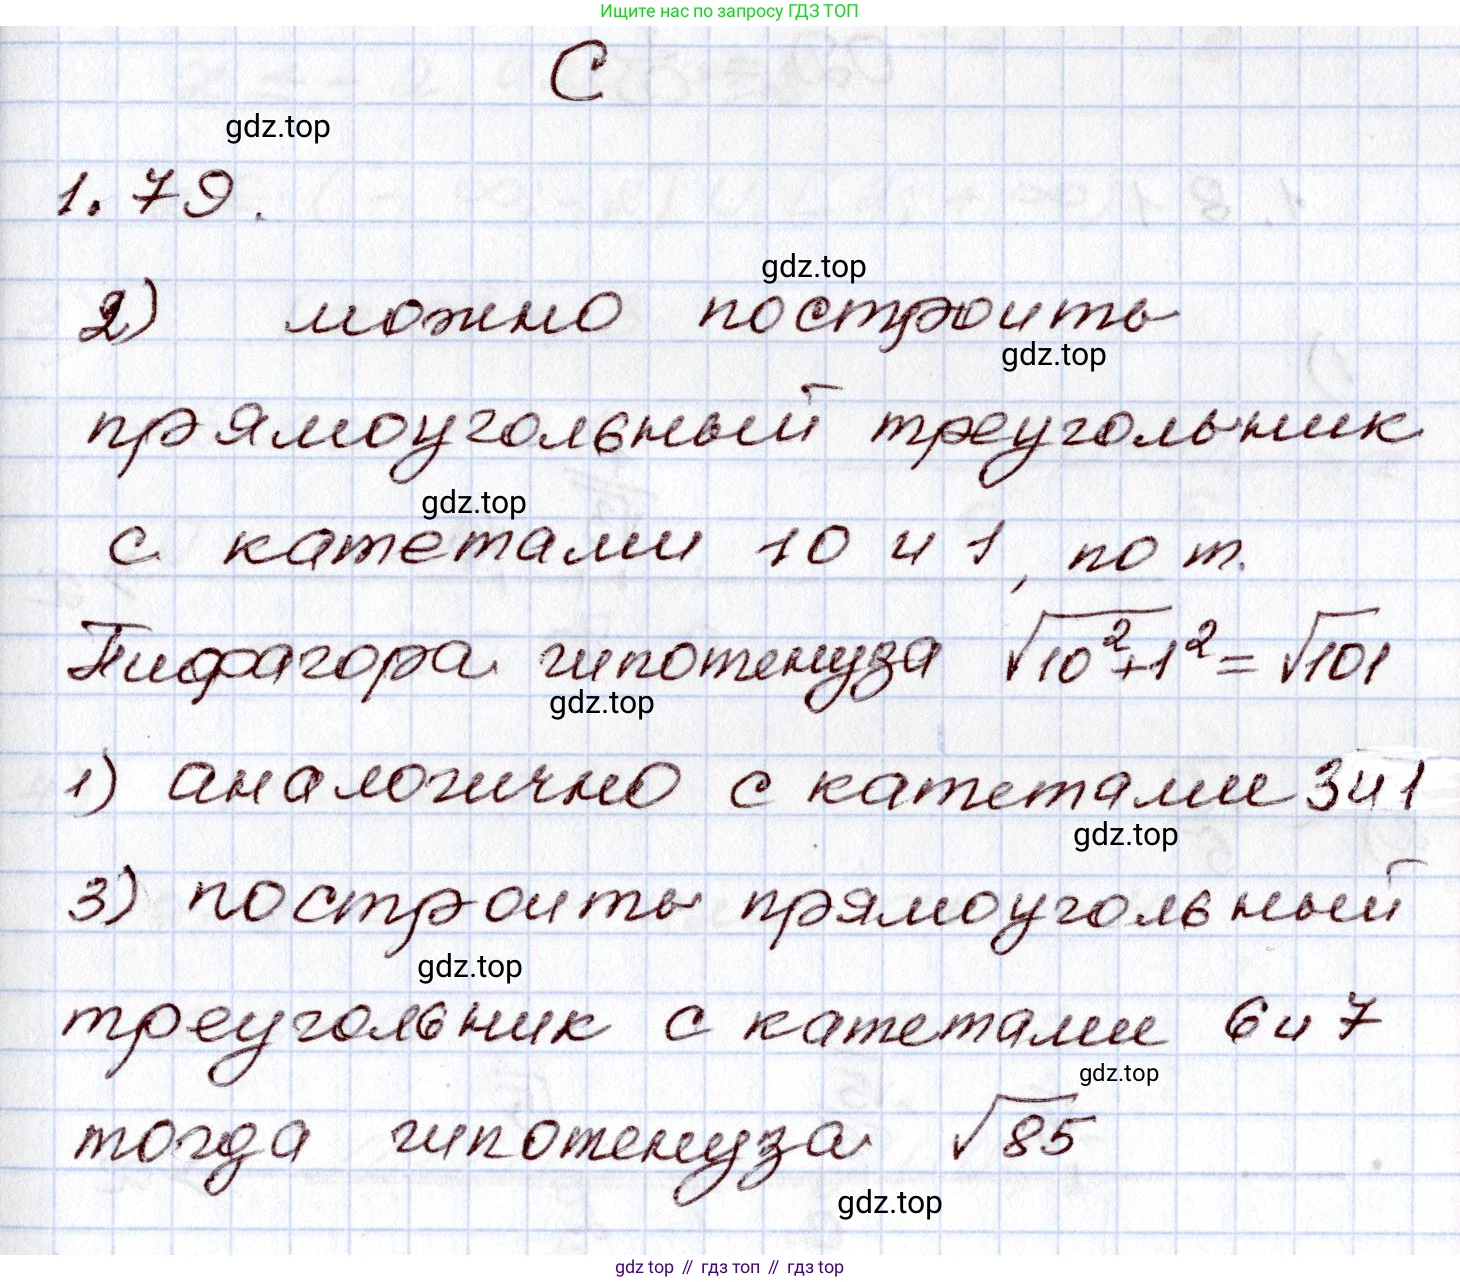 Ищите нас по запросу ГДЗ ТОП
С
gdz.top
1.79.
gdz.top
2) можно построить
gdz.top
прямоугольный треугольник
gdz.top
с катетами 10 и 1, по т.
Пифагора гипотенуза √10²+1² = √101
gdz.top
1) аналогично с катетами 3 и 1
gdz.top
3) построить прямоугольный
gdz.top
треугольник с катетами 6 и 7
gdz.top
тогда гипотенуза √85
gdz.top
gdz top // гдз топ // гдз top